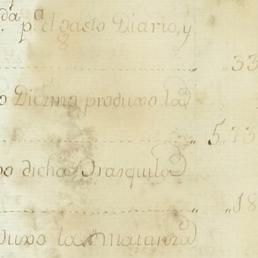 dá. p.ª el gasto Diario, y
33
o Diezmo produxo la
5,73
o dicha Trasquila
,18
duxo la Matanza